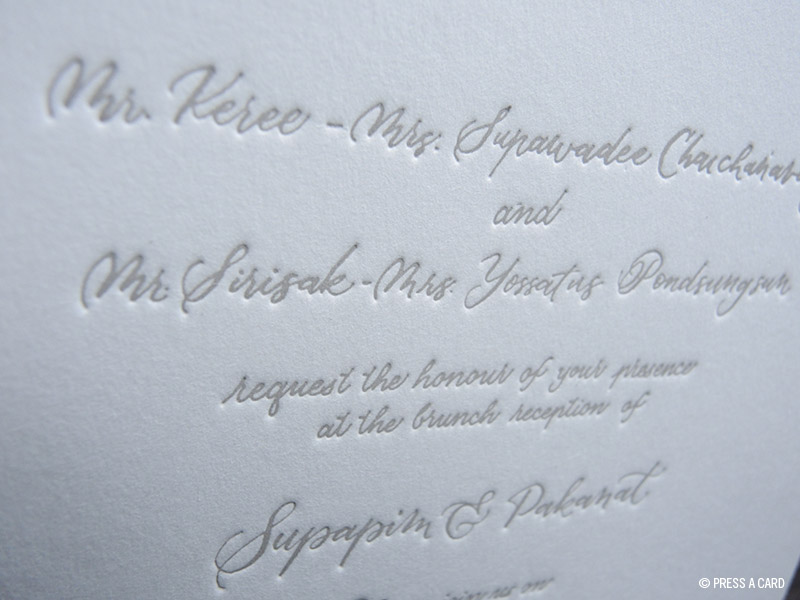 Mr. Keree - Mrs. Supawadee
and
Mr. Sirisak - Mrs. Yossatus Pondsungsun
request the honour of your presence
at the brunch reception of
Supapim & Pakanat
© PRESS A CARD